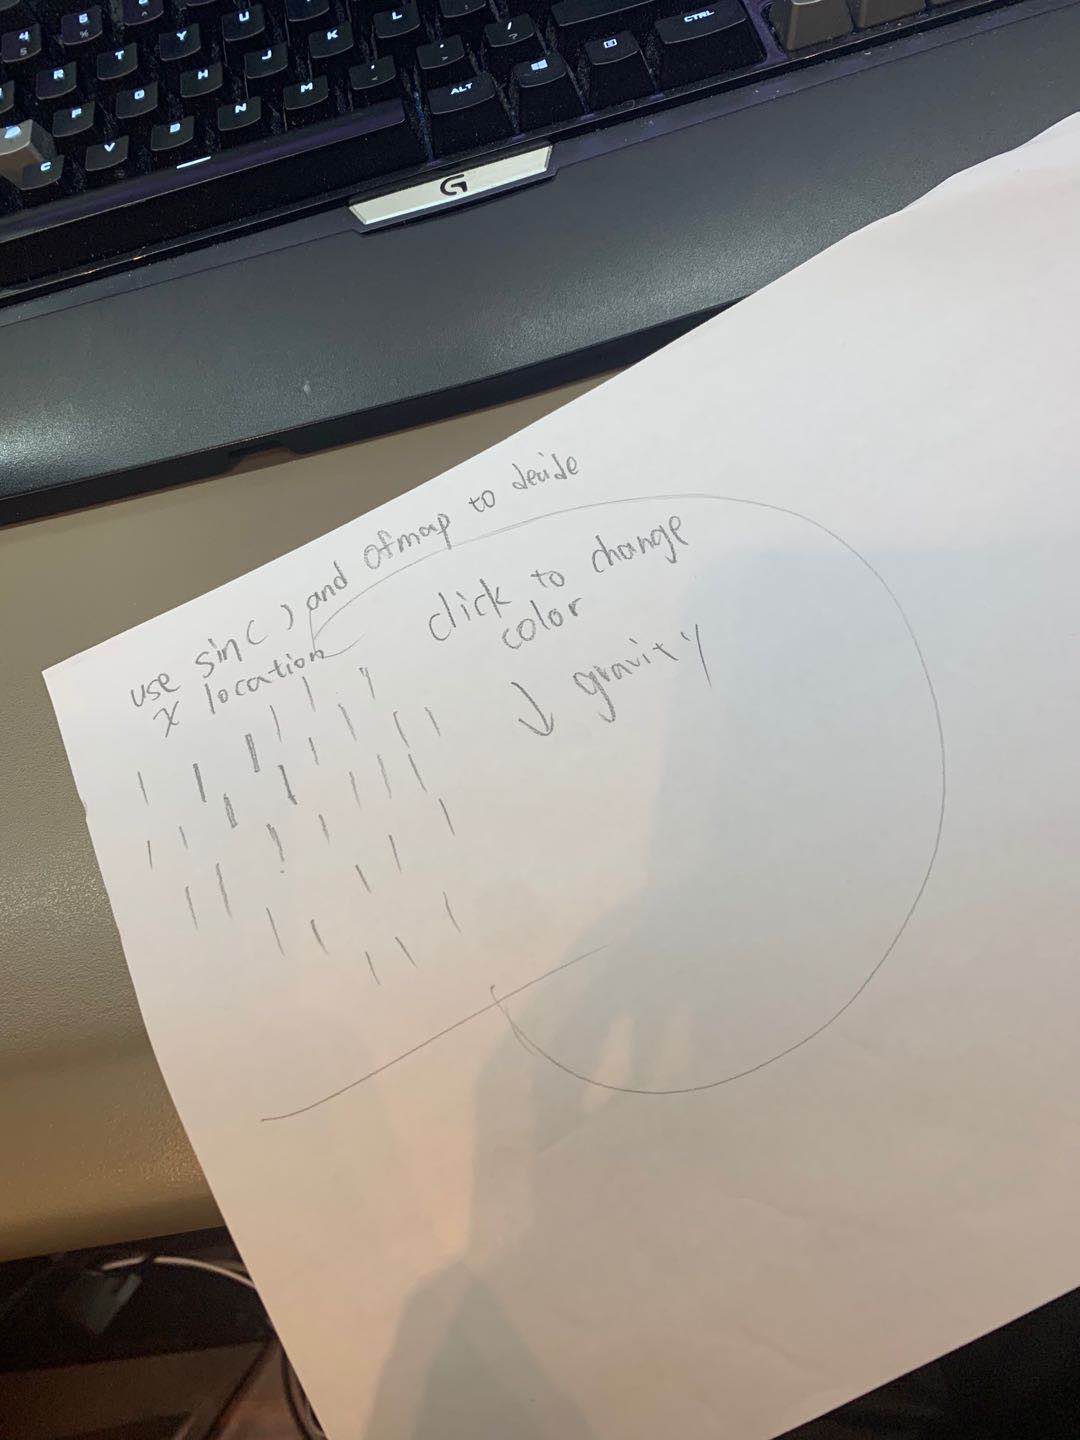 4
5
5
%
6
R
T
Y
U
L
F
G
H
J
K
/
?
CTRL
C
V
B
N
M
ALT
G
use sin() and ofmap to decide
x location
click to change
color
↓ gravity